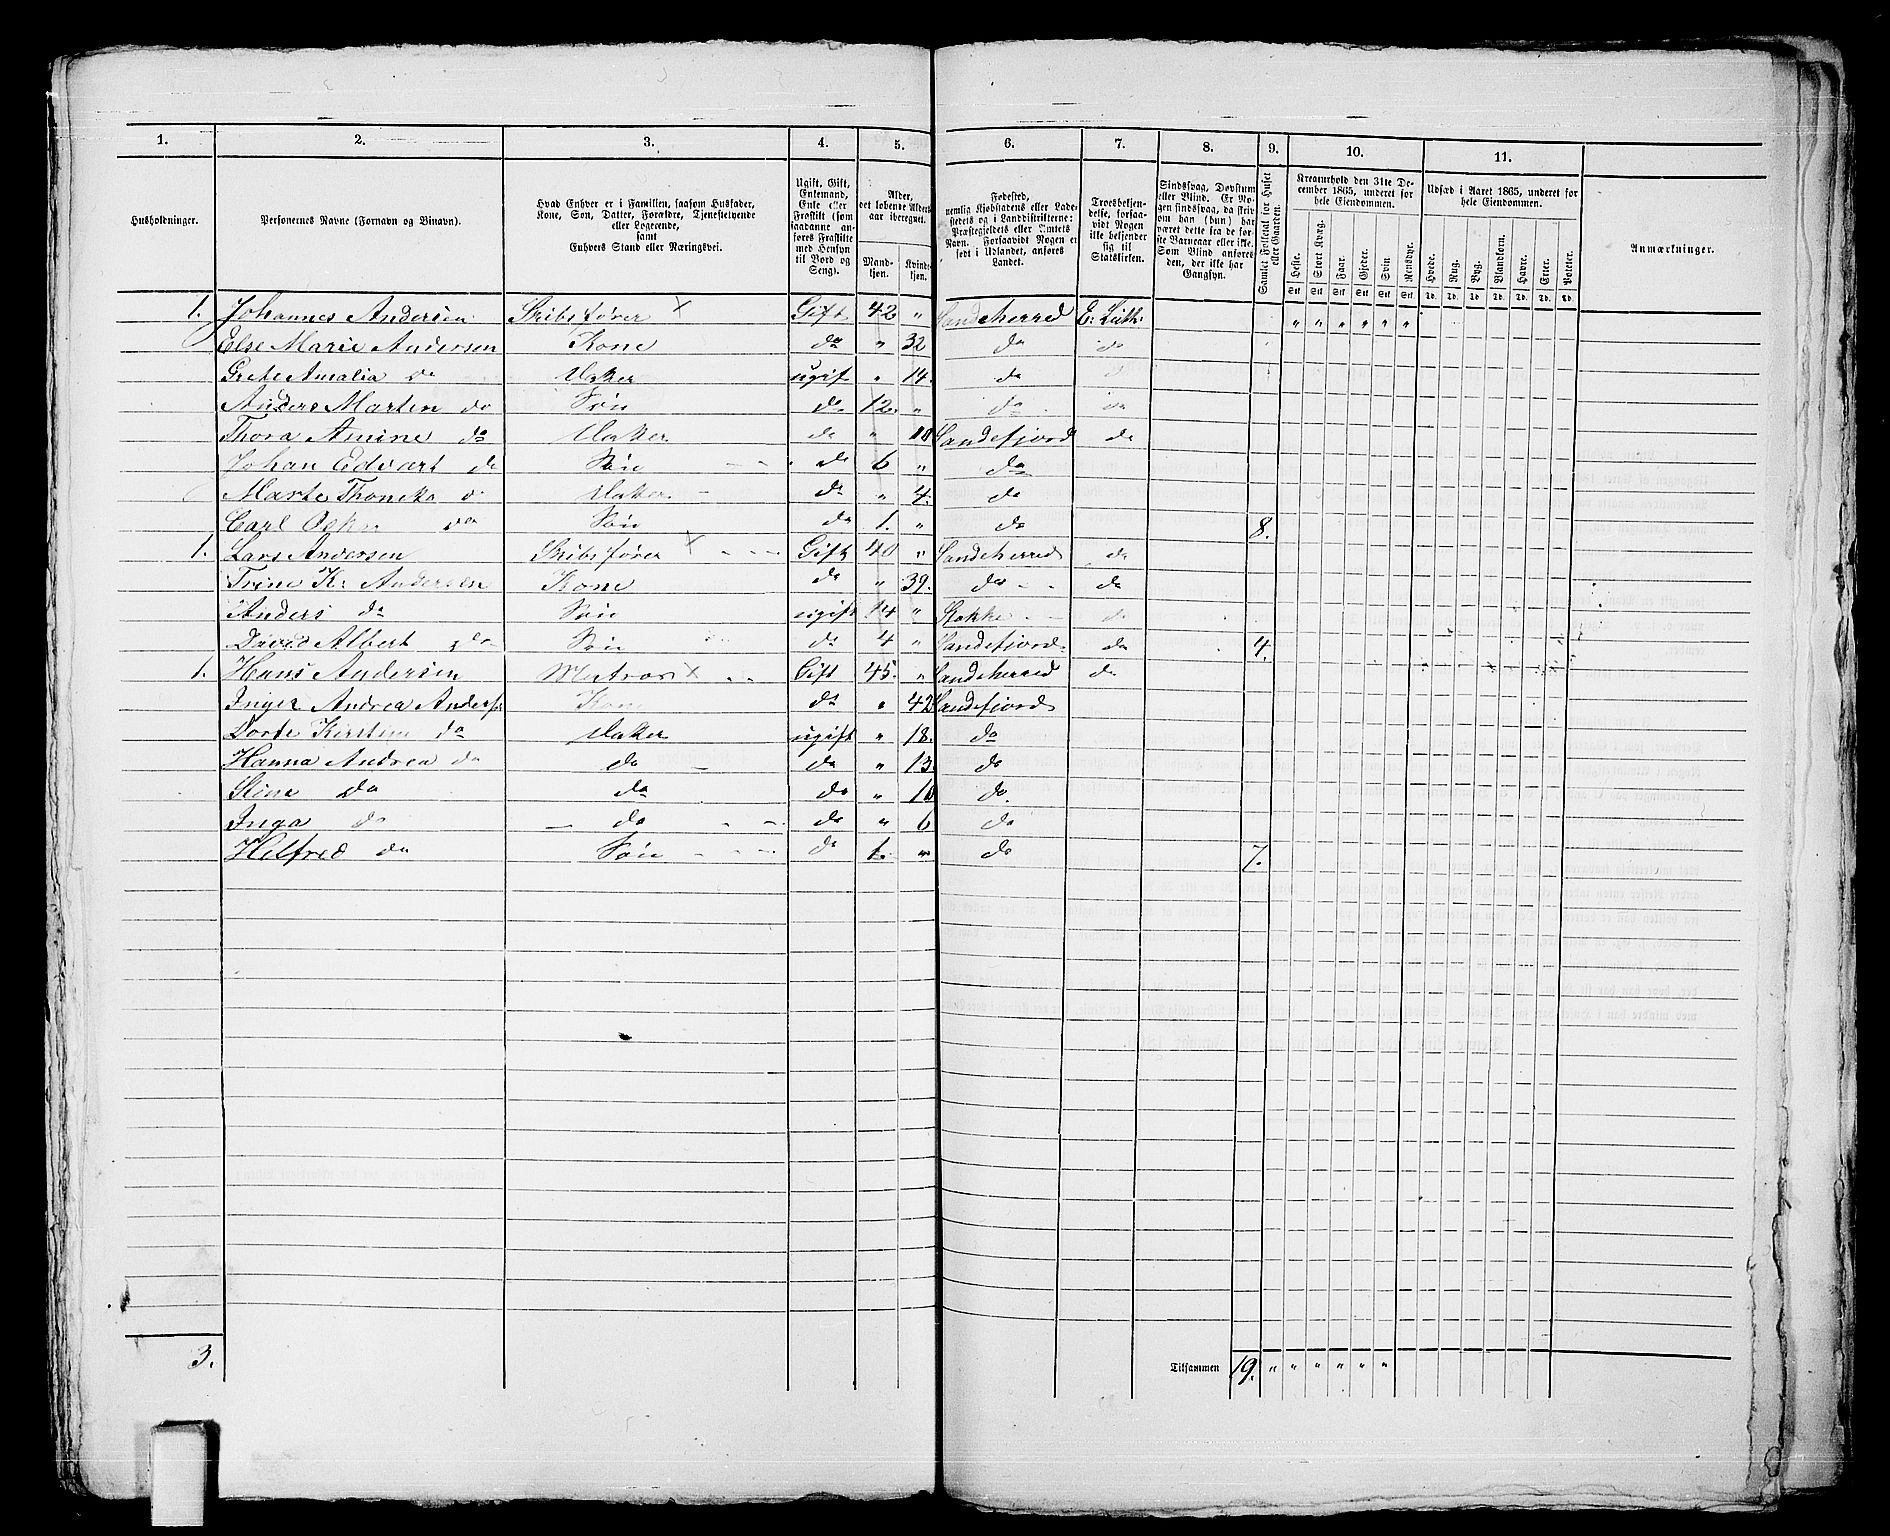 1. 2. 3. 4. 5. 6. 7. 8. 9. 10. 11.
Husholdninger.
Personernes Navne (Fornavn og Binavn).
Hvad Enhver er i Familien, saasom Husfader,
Kone, Søn, Datter, Forældre, Tjenestetyende
eller Logerende,
samt
Enhvers Stand eller Næringsvei.
Ugift, Gift,
Enkemand,
Enke eller
Fraskilt (som
saadanne an-
føres Fraskilte
med Hensyn
til Bord og
Seng).
Alder,
det løbende Alders-
aar iberegnet.
Mand-
kjøn.
Kvinde-
kjøn.
Fødested,
nemlig Kjøbstadens eller Lade-
stedets og i Landdistrikterne:
Præstegjeldets eller Amtets
Navn. Forsaavidt Nogen er
født i Udlandet, anføres
Landet.
Troesbekjen-
delse, forsaa-
vidt Nogen
ikke bekjender
sig til
Statskirken.
Sindssvag, Døvstum
eller Blind. Er No-
gen sindssvag, da skriv
om han (hun) har
været dette fra de før-
ste Barneaar eller ikke.
Som Blind anføres
den, der ikke har
Gangsyn.
Samlet Folketal for Huset
eller Gaarden.
Kreaturhold den 31te De-
cember 1865, underet for
hele Eiendommen.
Heste. Stort Kvæg. Faar. Gjeder. Svin. Rensdyr.
Stk Stk Stk Stk Stk Stk.
Udsæd i Aaret 1865, underet for
hele Eiendommen.
Hvede. Rug. Byg. Blandkorn. Havre. Erter. Poteter.
Td. Td. Td. Td. Td. Td. Td.
Anmærkninger.
1. Johannes Andersen Skibsfører X Gift 42 " Sandeherred E: Luth: " " " " " "
Else Marie Andersen Kone do " 32 do do
Grete Amalia do Dater ugift " 14. do
Anders Marten do Søn do 12. " do do
Thora Amine do Dater do " 10 Sandefjord do
Johan Edvart do Søn do 6 " do
Marte Thoneka do Dater do " 4. do
Carl do Søn do 1. " do 8.
1. Lars Andersen Skibsfører X Gift 40 " Sandeherred do
Trine K: Andersen Kone do " 39. do do
Anders do Søn ugift 14 " Stokke do
David Albert do Søn do 4 " Sandefjord do 4.
1. Hans Andersen Matros X Gift 45. " Sandeherred do
Inger Andrea Anders Kone do " 42 Sandefjord
Dorte Kirstine do Dater ugift " 18. do
Hanna Andrea do do do " 13 do
Stine do do do " 10 do.
Inga do do do " 6 do
Helfred do Søn do 1. " do 7.
3. Tilsammen 19. " " " " " "